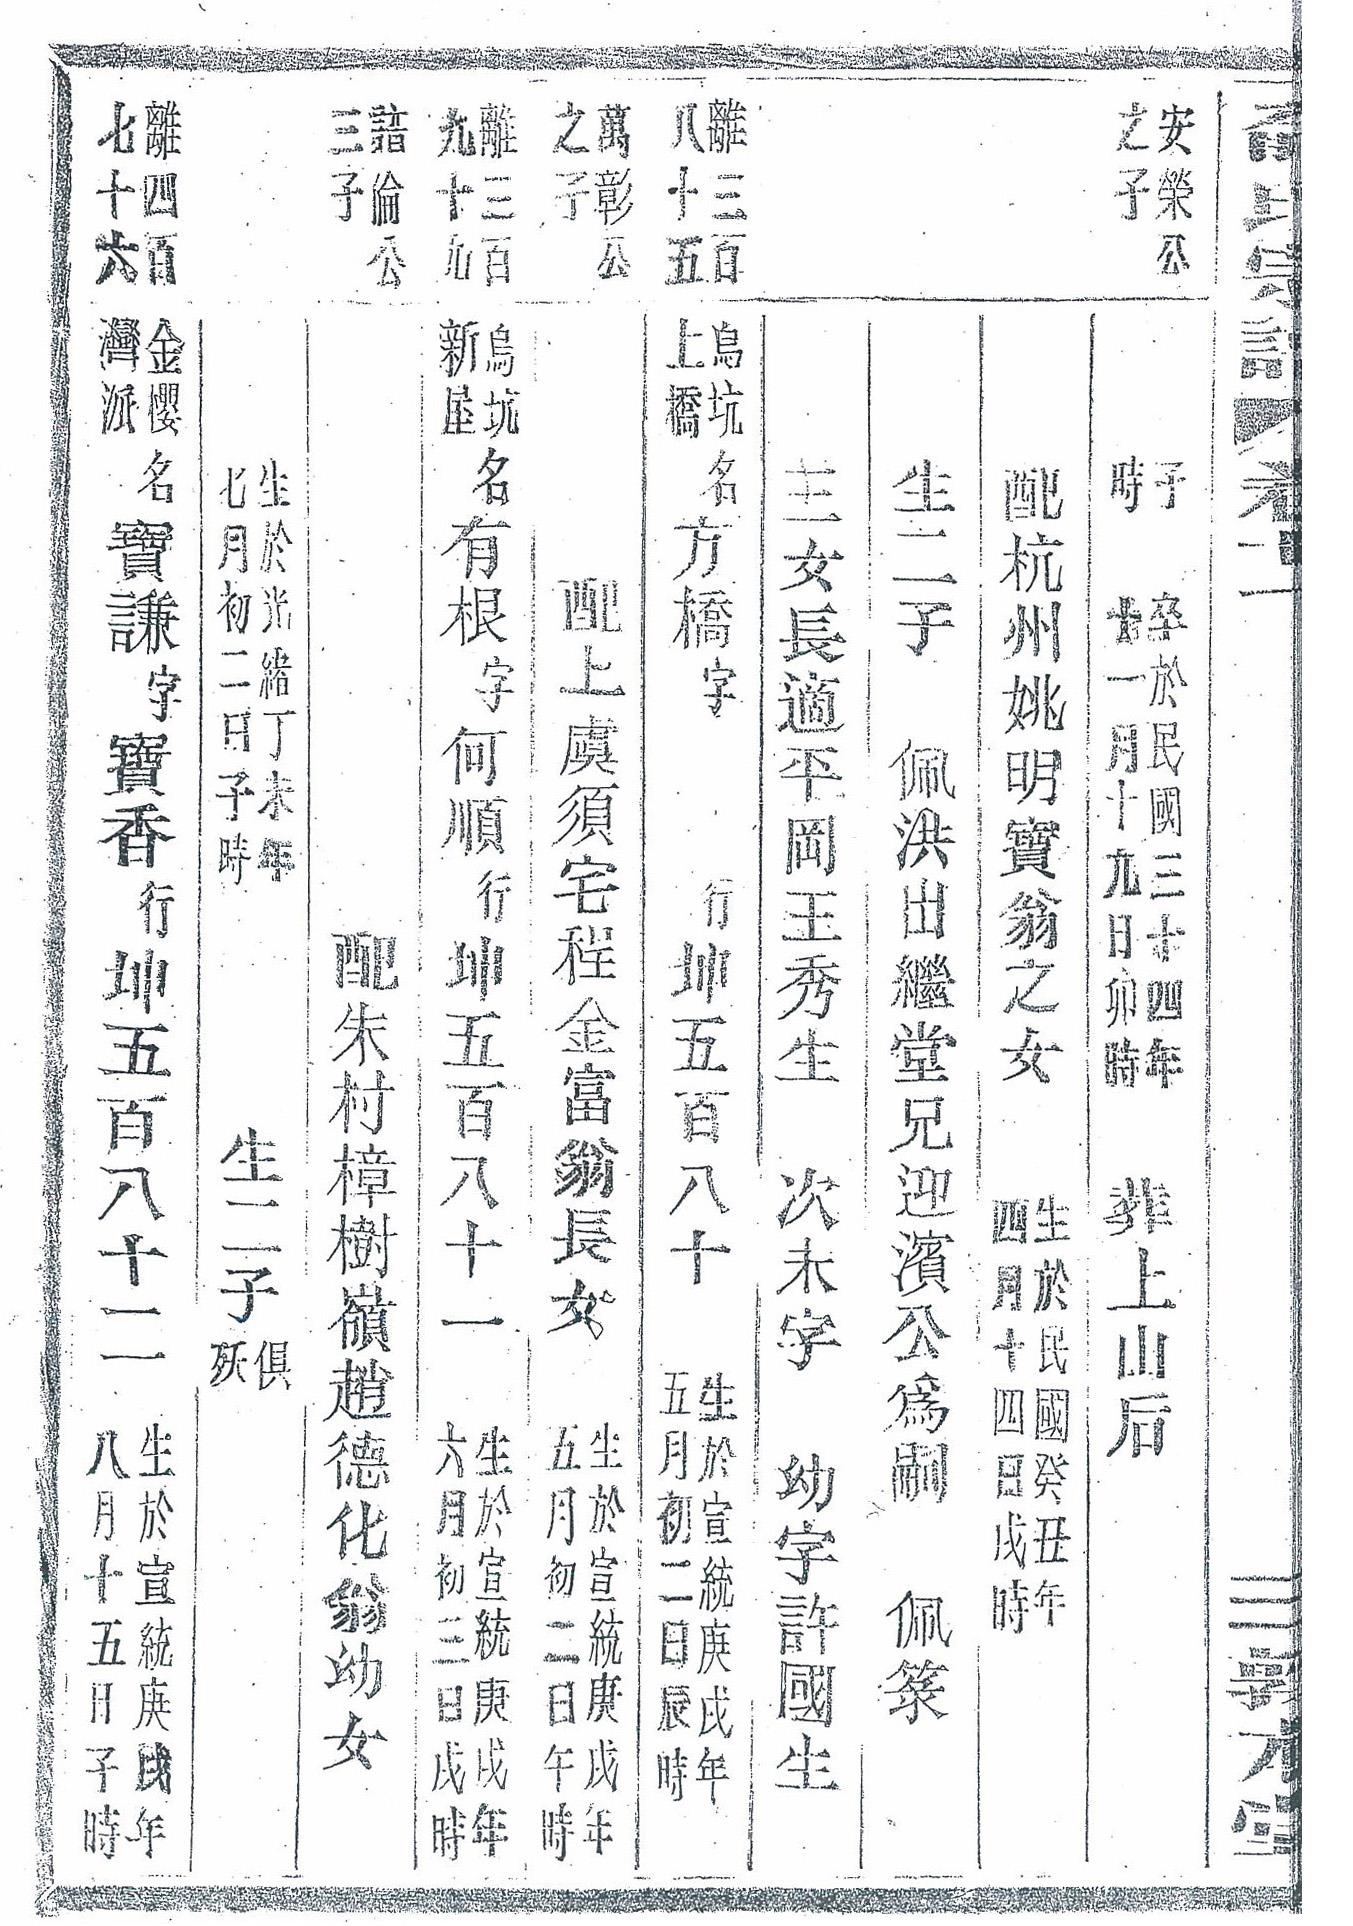 氏宗譜 卷十一
安榮公
之子
子
時
卒於民國三十四年
十一月十九日卯時
葬上山后
配杭州姚明寶翁之女
生於民國癸丑年
四月十四日戌時
生二子 佩洪出繼堂兄迎濱公為嗣 佩箂
三女長適平岡王秀生 次未字 幼字許國生
離三百
八十五
烏坑
上橋
名方橋字 行坤五百八十
生於宣統庚戌年
五月初二日辰時
萬彰公
之子
配上虞須宅程金富翁長女
生於宣統庚戌年
五月初二日午時
離三百
九十九
烏坑
新屋
名有根字何順行坤五百八十一
生於宣統庚戌年
六月初三日戌時
諳倫公
三子
配朱村樟樹嶺趙德化翁幼女
生於光緒丁未年
七月初二日子時
生二子
俱
殀
離四百
七十六
金櫻
灣派
名寶謙字寶香行坤五百八十二
生於宣統庚戌年
八月十五日子時